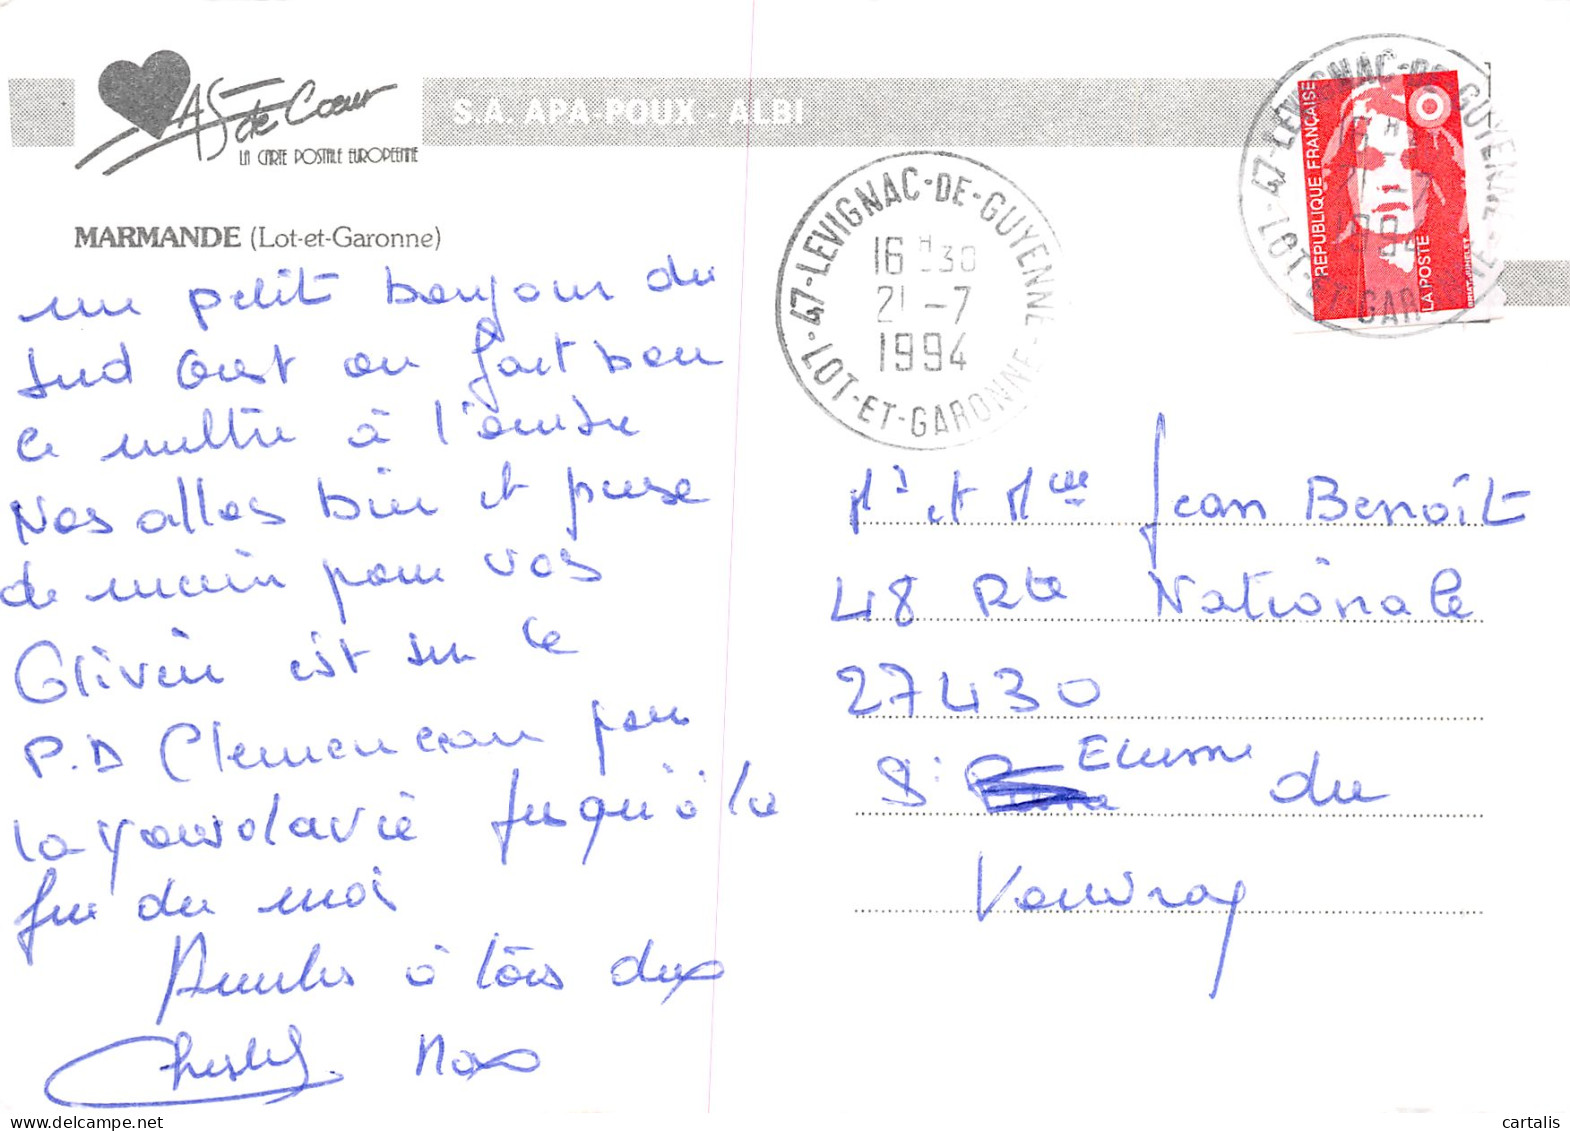 As de Coeur
LA CARTE POSTALE EUROPEENNE
S.A. APA-POUX - ALBI
MARMANDE (Lot-et-Garonne)
un petit bonjour du
Sud Ouest ou fait bon
ce mettre à l'ombre
Nos alles bien et pense
de main pour vos
Olivier est sur le
P.D Clemenceau pour
la yousolavie jusqu'à la
fin du mois
Amitiés à tous deux
Max
47-LEVIGNAC-DE-GUYENNE
16 H 30
21 -7
1994
LOT-ET-GARONNE
47-LEVIGNAC-DE-GUYENNE
21 -7
1994
LOT-ET-GARONNE
REPUBLIQUE FRANÇAISE
LA POSTE
Mr et Mme Jean Benoît
48 Rte Nationale
27430
St Etienne du
Vouvray
cartalis